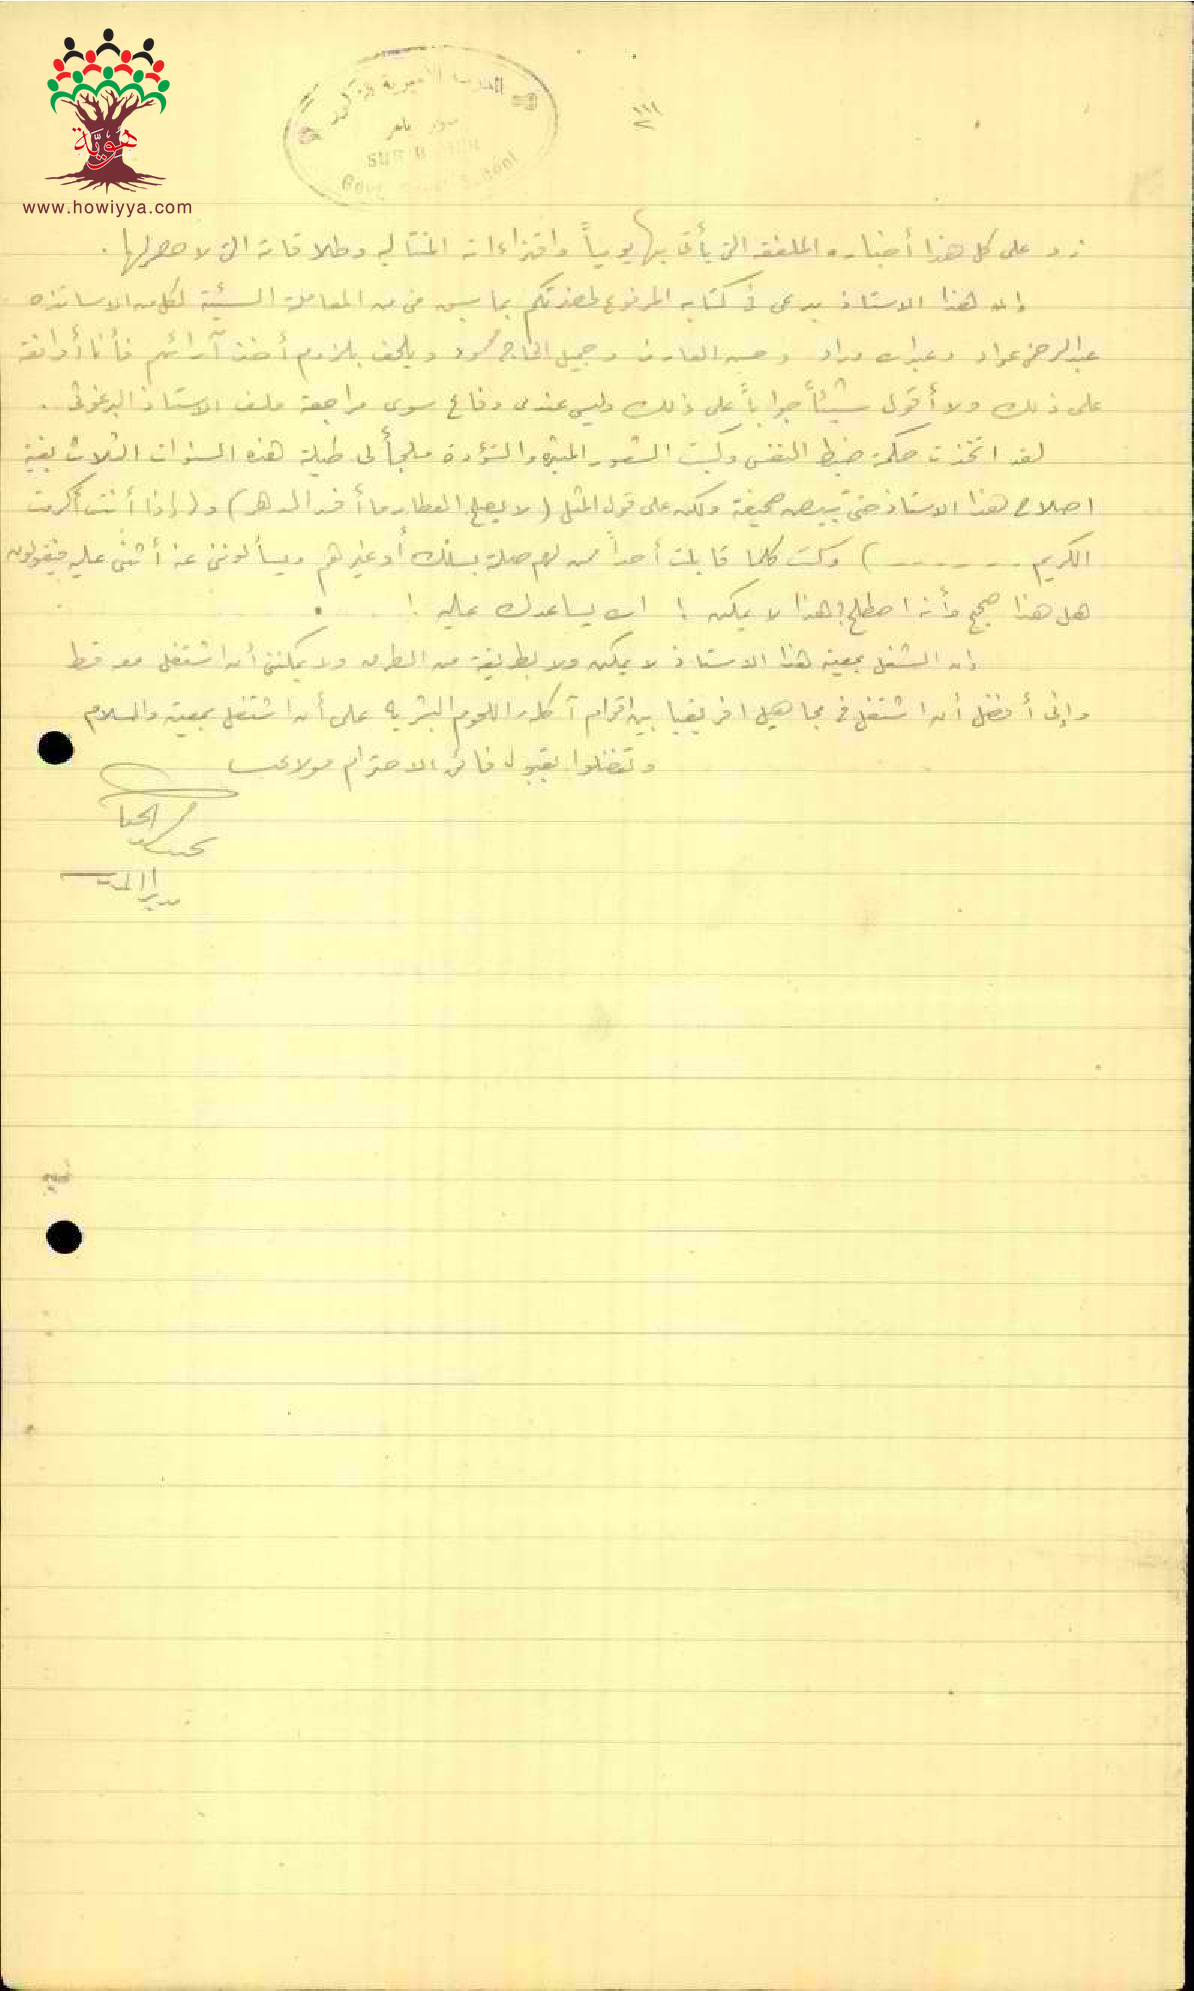 هويّة
www.howiyya.com
المدرسة الأميرية للذكور
صور باهر
SUR BAHIR
Govt. Boys' School
زد على كل هذا أخباره الملفقه التي يأتي بها يومياً وافتراءاته المتتاليه وطلاقاته التي لا حصر لها .
وان هذا الاستاذ يدعي في كتابه المرفوع لحضرتكم بما سبق مني من المعاملة السيئة لكل من الاساتذه
عبد الرحمن عواد و مراد وحسن العارف وجميل الحاج محمود ويلحف بلزوم أخذ آرائهم فأنا أوافقه
على ذلك ولا أقول شيئاً جواباً على ذلك وليس عندي دفاع سوى مراجعة ملف الاستاذ البرغوثي .
لقد اتخذت حكمة ضبط النفس وكبت الشعور والتؤدة ملجأ لي طيلة هذه السنوات الثلاث بغية
اصلاح هذا الاستاذ حتى تبيض صحيفة ولكن على قول المثل ( لا يصلح العطار ما أفسد الدهر ) و ( إذا أنت أكرمت
الكريم ------- ) وكنت كلما قابلت أحداً ممن لهم صلة بسلك أو غيرهم ويسألونني عنه أثني عليه فيقولون
هل هذا صحيح وأنه اصطلح ! هذا لا يمكن ! الله يساعدك عليه !
وان الشغل بمعية هذا الاستاذ لا يمكن ولا بطريقة من الطرق ولا يمكنني أن اشتغل معه قط
وإني أفضل أن اشتغل في مجاهيل افريقيا بين اقزام آكلة اللحوم البشريه على أن اشتغل بمعيته والسلام
وتفضلوا بقبول فائق الاحترام مولاي
مدير المدرسة